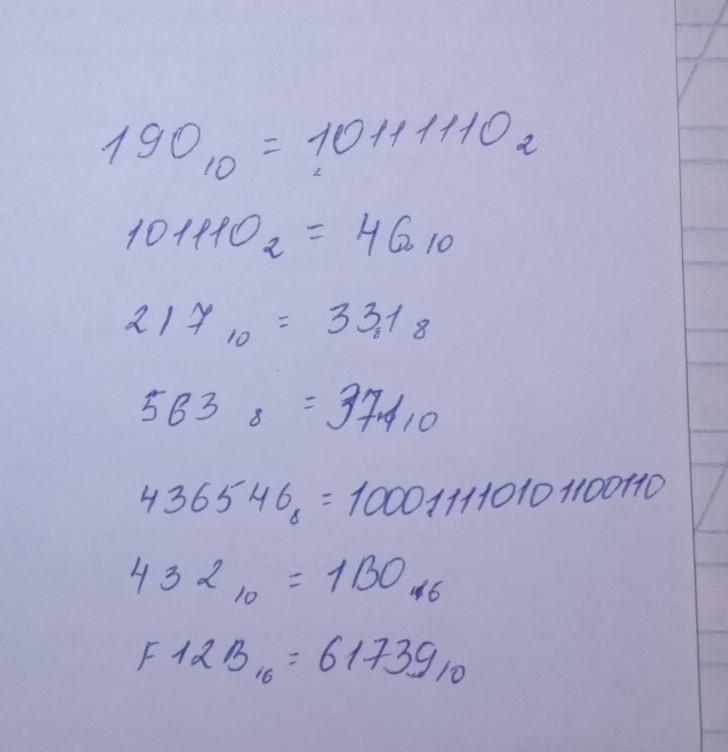 190₁₀ = 10111110₂
101110₂ = 46₁₀
217₁₀ = 331₈
563₈ = 371₁₀
436546₈ = 100011110101100110
432₁₀ = 1B0₁₆
F12B₁₆ = 61739₁₀